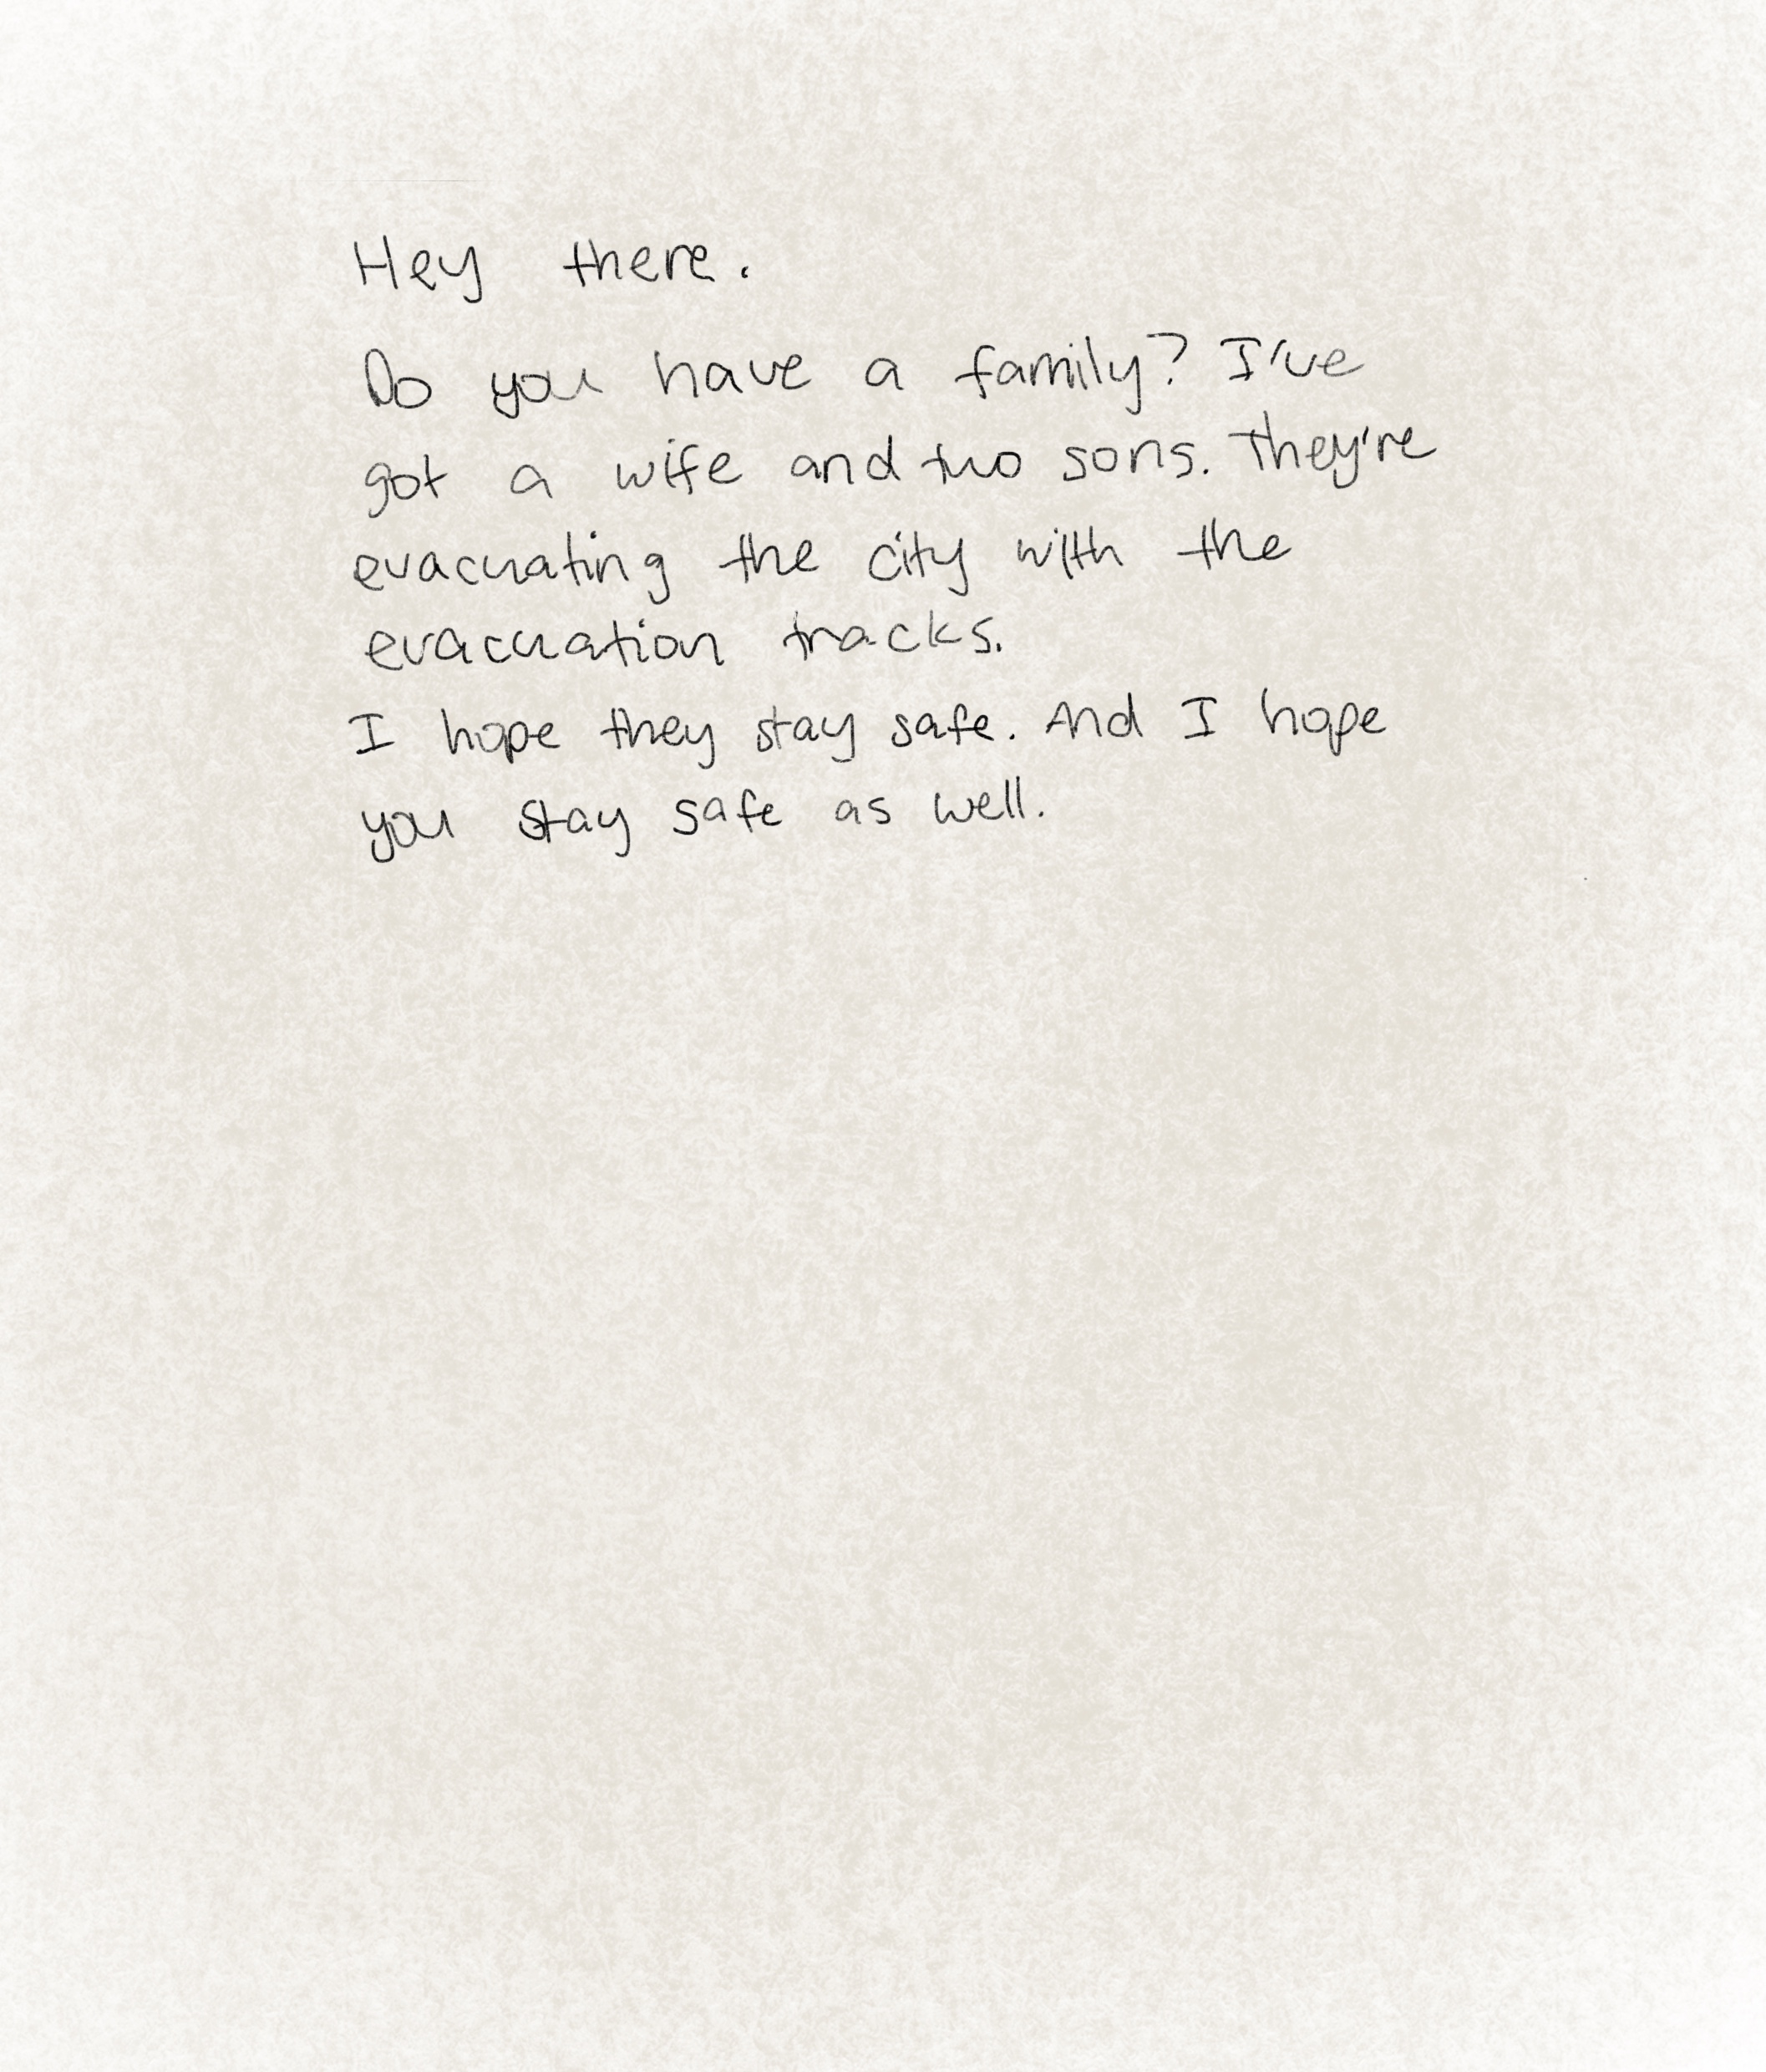 Hey there.
Do you have a family? I've
got a wife and two sons. They're
evacuating the city with the
evacuation tracks.
I hope they stay safe. And I hope
you stay safe as well.